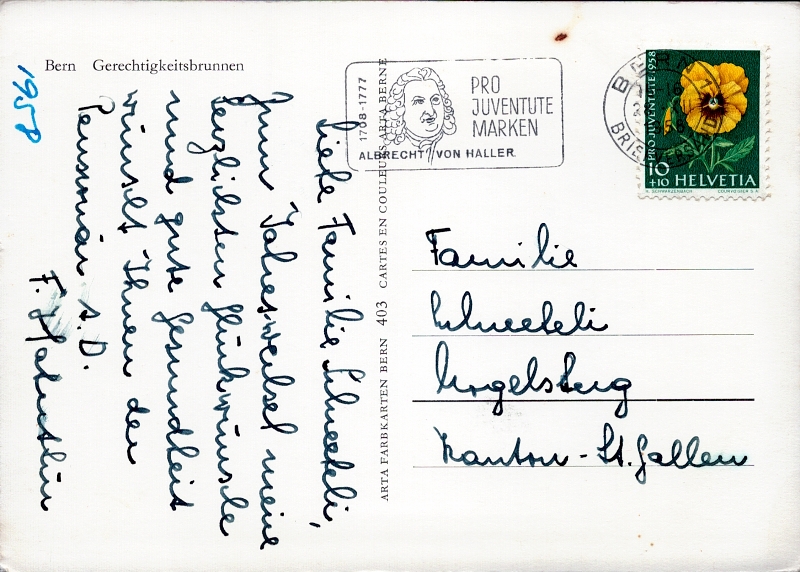 Bern Gerechtigkeitsbrunnen
1958
Liebe Familie Schneebeli,
zum Jahreswechsel meine
herzlichsten Glückwünsche
und gute Gesundheit
wünscht Ihnen der
Pensionär a. D.
F.
ARTA FARBKARTEN BERN 403 CARTES EN COULEURS ARTA BERNE
1708-1777
PRO
JUVENTUTE
MARKEN
ALBRECHT VON HALLER
BERN 1
1958
PRO JUVENTUTE 1958
10
+10 HELVETIA
COURVOISIER S.A.
Familie
Schneebeli
Mogelsberg
Kanton - St. Gallen